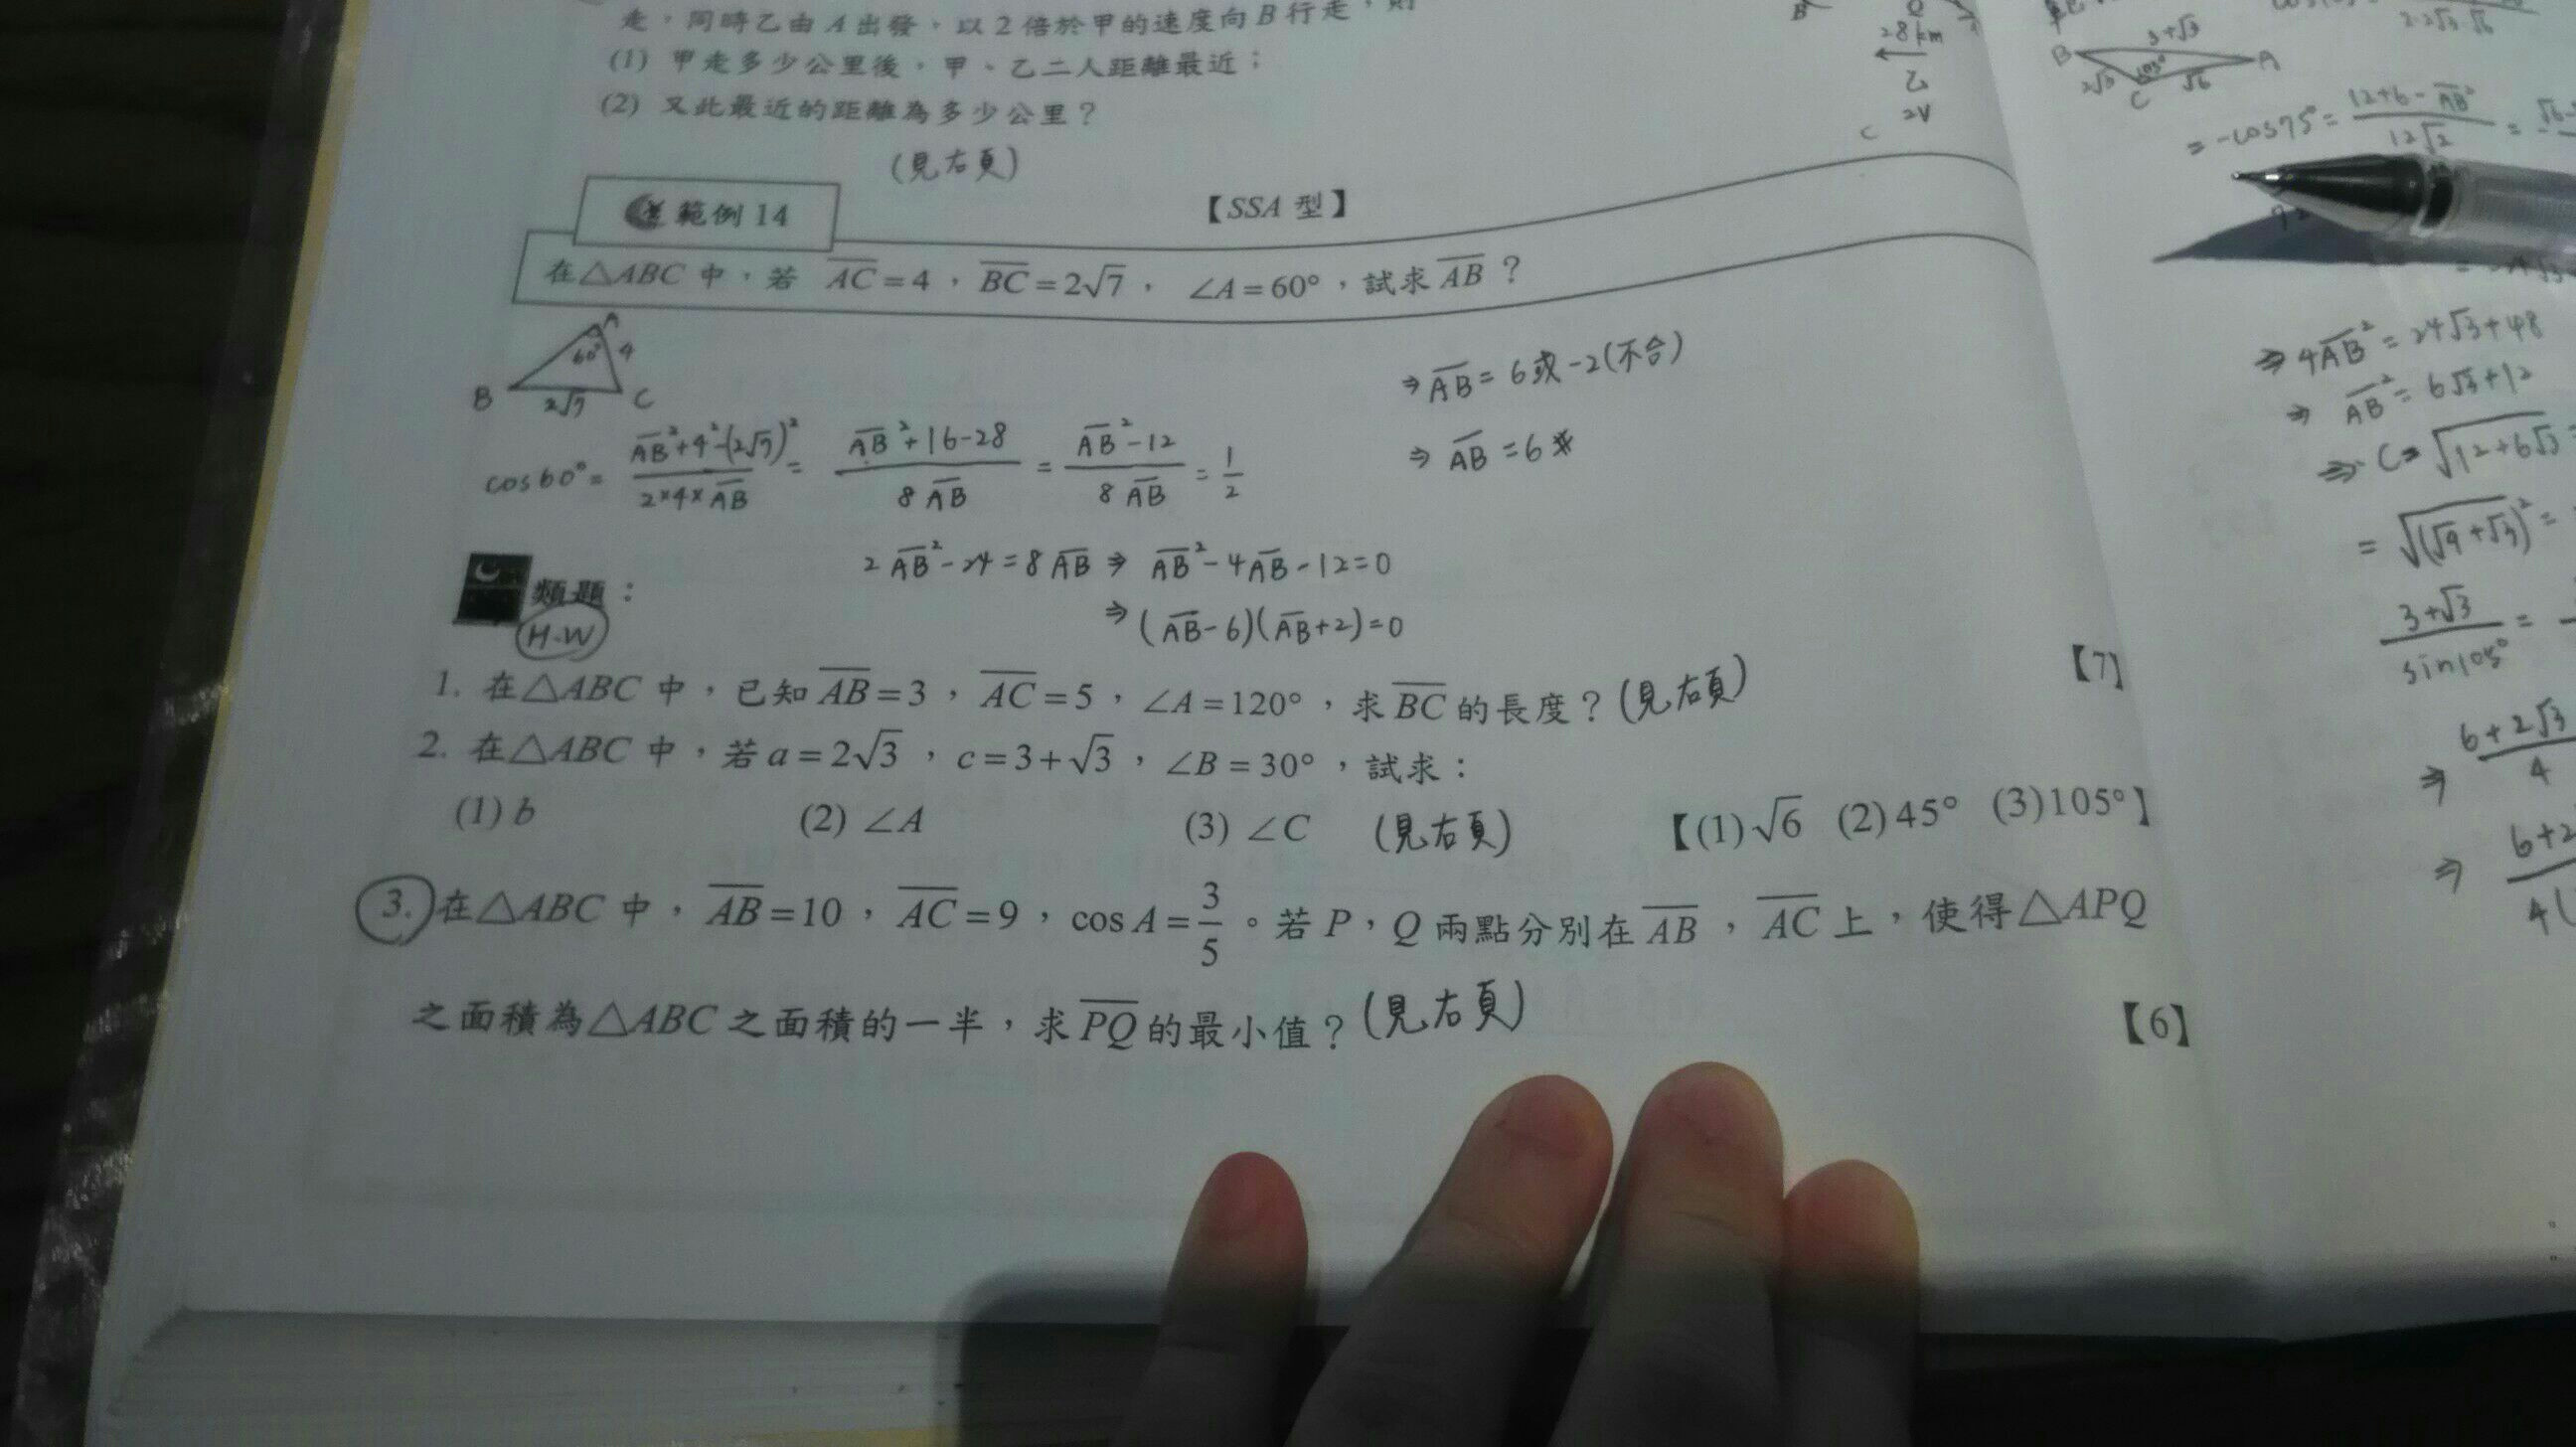 走，同時乙由 A 出發，以 2 倍於甲的速度向 B 行走，則
(1) 甲走多少公里後，甲、乙二人距離最近；
(2) 又此最近的距離為多少公里？
(見右頁)
B
28km
乙
2V
C
範例 14
【SSA 型】
在△ABC 中，若 \overline{AC}=4，\overline{BC}=2√7， ∠A=60°，試求 \overline{AB}？
A
60°
4
B
2√7
C
cos60°= (\overline{AB}²+4²-(2√7)²)/(2×4×\overline{AB}) = (\overline{AB}²+16-28)/(8\overline{AB}) = (\overline{AB}²-12)/(8\overline{AB}) = 1/2
2\overline{AB}²-24=8\overline{AB} ⇒ \overline{AB}²-4\overline{AB}-12=0
⇒ (\overline{AB}-6)(\overline{AB}+2)=0
⇒ \overline{AB}=6或-2(不合)
⇒ \overline{AB}=6
類題：
H.W
1. 在△ABC 中，已知 \overline{AB}=3，\overline{AC}=5，∠A=120°，求 \overline{BC} 的長度？(見右頁) 【7】
2. 在△ABC 中，若 a=2√3，c=3+√3，∠B=30°，試求：
(1) b (2) ∠A (3) ∠C (見右頁) 【(1)√6 (2)45° (3)105°】
3. 在△ABC 中，\overline{AB}=10，\overline{AC}=9，cos A=3/5。若 P，Q 兩點分別在 \overline{AB}，\overline{AC} 上，使得△APQ
之面積為△ABC 之面積的一半，求 \overline{PQ} 的最小值？(見右頁) 【6】
B
3+√3
A
2√3
105°
√6
C
= -cos75°= (12+6-\overline{AB}²)/(12√2) =
⇒ 4\overline{AB}²=24√3+48
⇒ \overline{AB}²=6√3+12
⇒ C=√(12+6√3)
= √((√9+√3)²) =
(3+√3)/sin105° =
⇒ (6+2√3)/4
⇒